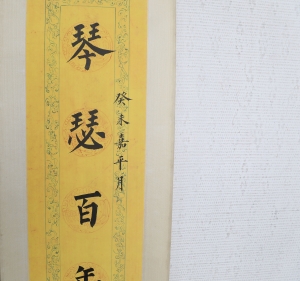 癸未嘉平月
琴瑟百年